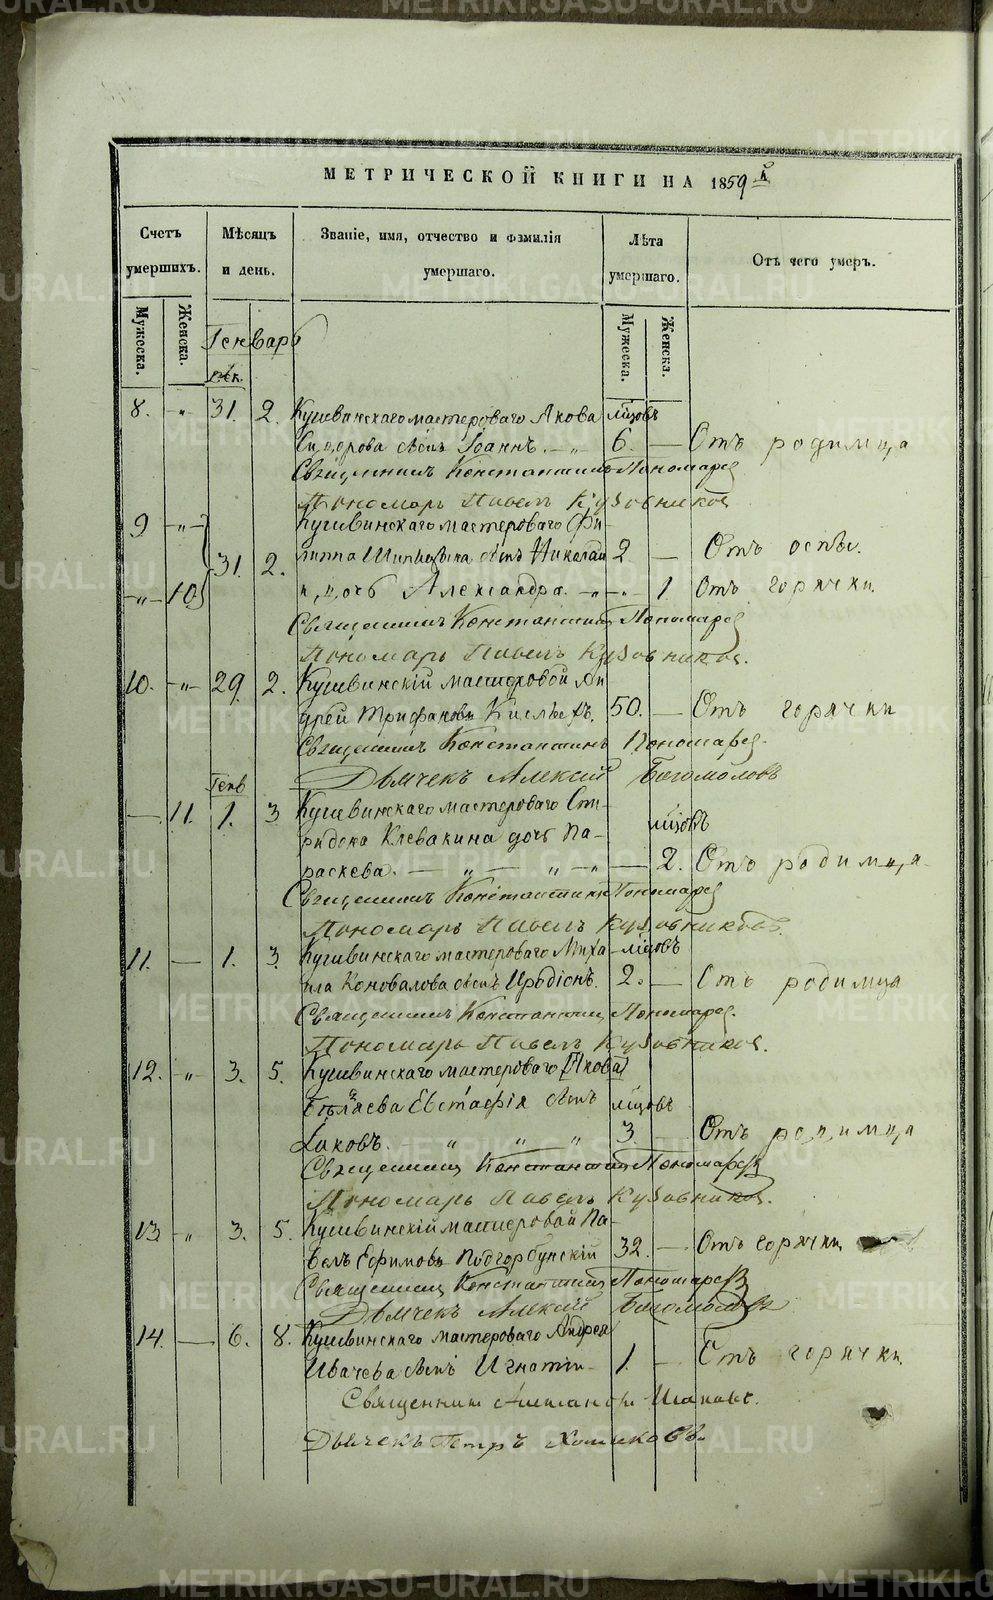 METRIKI.GASO-URAL.RU
МЕТРИЧЕСКОЙ КНИГИ НА 1859 й
Счетъ умершихъ.
Мѣсяцъ и день.
Званіе, имя, отчество и фамилія умершаго.
Лѣта умершаго.
Отъ чего умеръ.
Мужеска.
Женска.
Генварь
Мужеска.
Женска.
8. „ 31. 2. Кушвинскаго мастероваго Якова мѣсцовъ
Сидорова сынъ Іоаннъ. — „ 6. — Отъ родимца
Священникъ Константинъ Пономаревъ
Пономарь Павелъ Кузовниковъ
9 — „ — Кушвинскаго мастероваго Фи-
липпа сынъ Николай 2 — Отъ оспы.
31. 2.
— „ — 10 и дочь Александра. — „ — 1. Отъ горячки.
Священникъ Константинъ Пономаревъ
Пономарь Павелъ Кузовниковъ.
10. — „ — 29. 2. Кушвинскій мастеровой Ан
дрей Трифановъ 50. — Отъ горячки
Священникъ Константинъ Пономаревъ.
Дьячекъ Алексій Богомоловъ
Генв
— 11. 1. 3 Кушвинскаго мастероваго Спи-
ридона Клевакина дочь Па- мѣсцовъ
раскева. — „ — „ — „ — 2. Отъ родимца.
Священникъ Константинъ Пономаревъ
Пономарь Павелъ Кузовниковъ.
11. — 1. 3. Кушвинскаго мастероваго Миха- мѣсцовъ
ила Коновалова сынъ Иродіонъ. 2. — Отъ родимца
Священникъ Константинъ Пономаревъ.
Пономарь Павелъ Кузовниковъ.
12. „ 3. 5. Кушвинскаго мастероваго [Якова]
Бѣляева Евстафія сынъ мѣсцовъ
Іаковъ. „ „ „ 3. Отъ родимца
Священникъ Константинъ Пономаревъ
Пономарь Павелъ Кузовниковъ.
13 „ 3. 5. Кушвинскій мастеровой Па-
велъ Ефимовъ Подгорбунскій 32. — Отъ горячки
Священникъ Константинъ Пономаревъ
Дьячекъ Алексій Богомоловъ
14. — 6. 8. Кушвинскаго мастероваго Андрея
Ивачева сынъ Игнатій 1. — Отъ горячки.
Священникъ Александръ
Дьячекъ Петръ Хомяковъ.